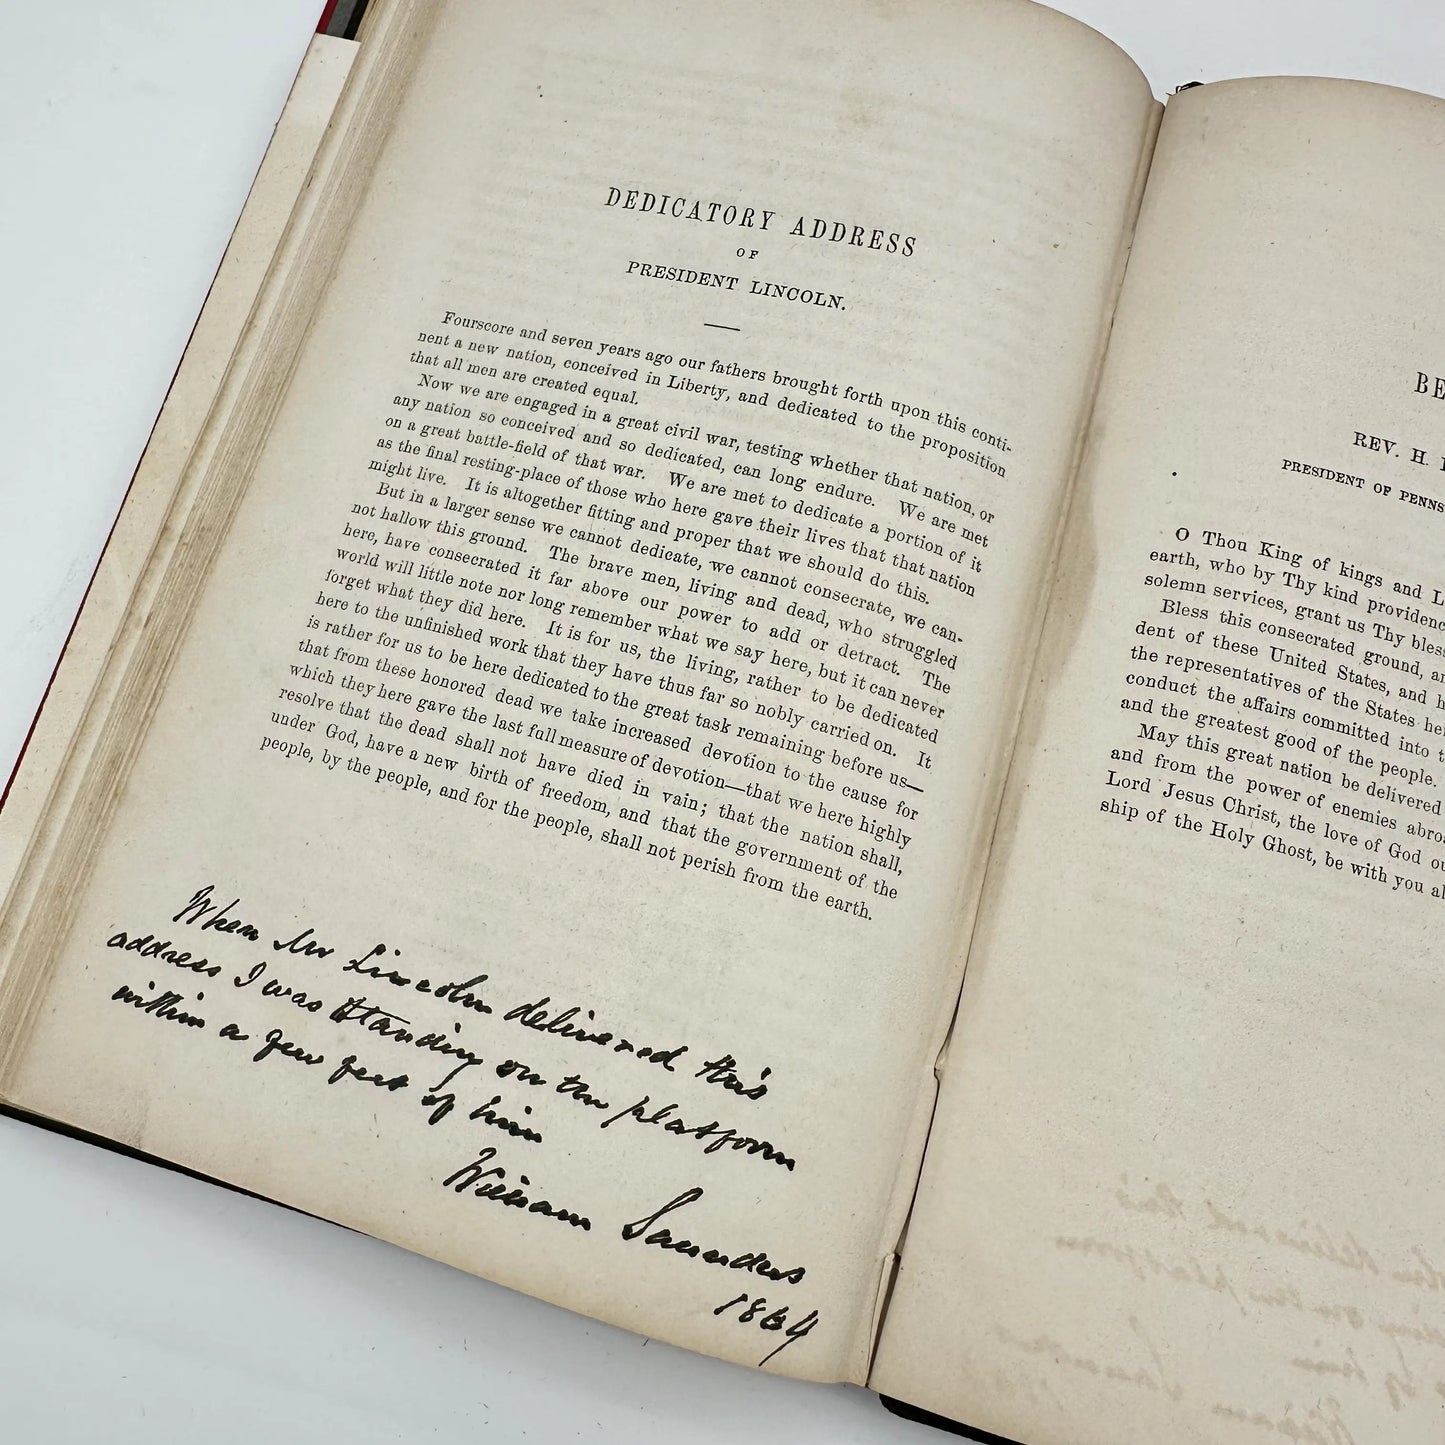 DEDICATORY ADDRESS
OF
PRESIDENT LINCOLN.
Fourscore and seven years ago our fathers brought forth upon this conti-
nent a new nation, conceived in Liberty, and dedicated to the proposition
that all men are created equal.
Now we are engaged in a great civil war, testing whether that nation, or
any nation so conceived and so dedicated, can long endure. We are met
on a great battle-field of that war. We are met to dedicate a portion of it
as the final resting-place of those who here gave their lives that that nation
might live. It is altogether fitting and proper that we should do this.
But in a larger sense we cannot dedicate, we cannot consecrate, we can-
not hallow this ground. The brave men, living and dead, who struggled
here, have consecrated it far above our power to add or detract. The
world will little note nor long remember what we say here, but it can never
forget what they did here. It is for us, the living, rather to be dedicated
here to the unfinished work that they have thus far so nobly carried on. It
is rather for us to be here dedicated to the great task remaining before us—
that from these honored dead we take increased devotion to the cause for
which they here gave the last full measure of devotion—that we here highly
resolve that the dead shall not have died in vain; that the nation shall,
under God, have a new birth of freedom, and that the government of the
people, by the people, and for the people, shall not perish from the earth.
When Mr Lincoln delivered this
address I was standing on the platform
within a few feet of him
William Saunders
1864
BE
REV. H. 
PRESIDENT OF PENNS
O Thou King of kings and L
earth, who by Thy kind providence
solemn services, grant us Thy bless
Bless this consecrated ground, an
dent of these United States, and h
the representatives of the States her
conduct the affairs committed into t
and the greatest good of the people.
May this great nation be delivered
and from the power of enemies abro
Lord Jesus Christ, the love of God ou
ship of the Holy Ghost, be with you al